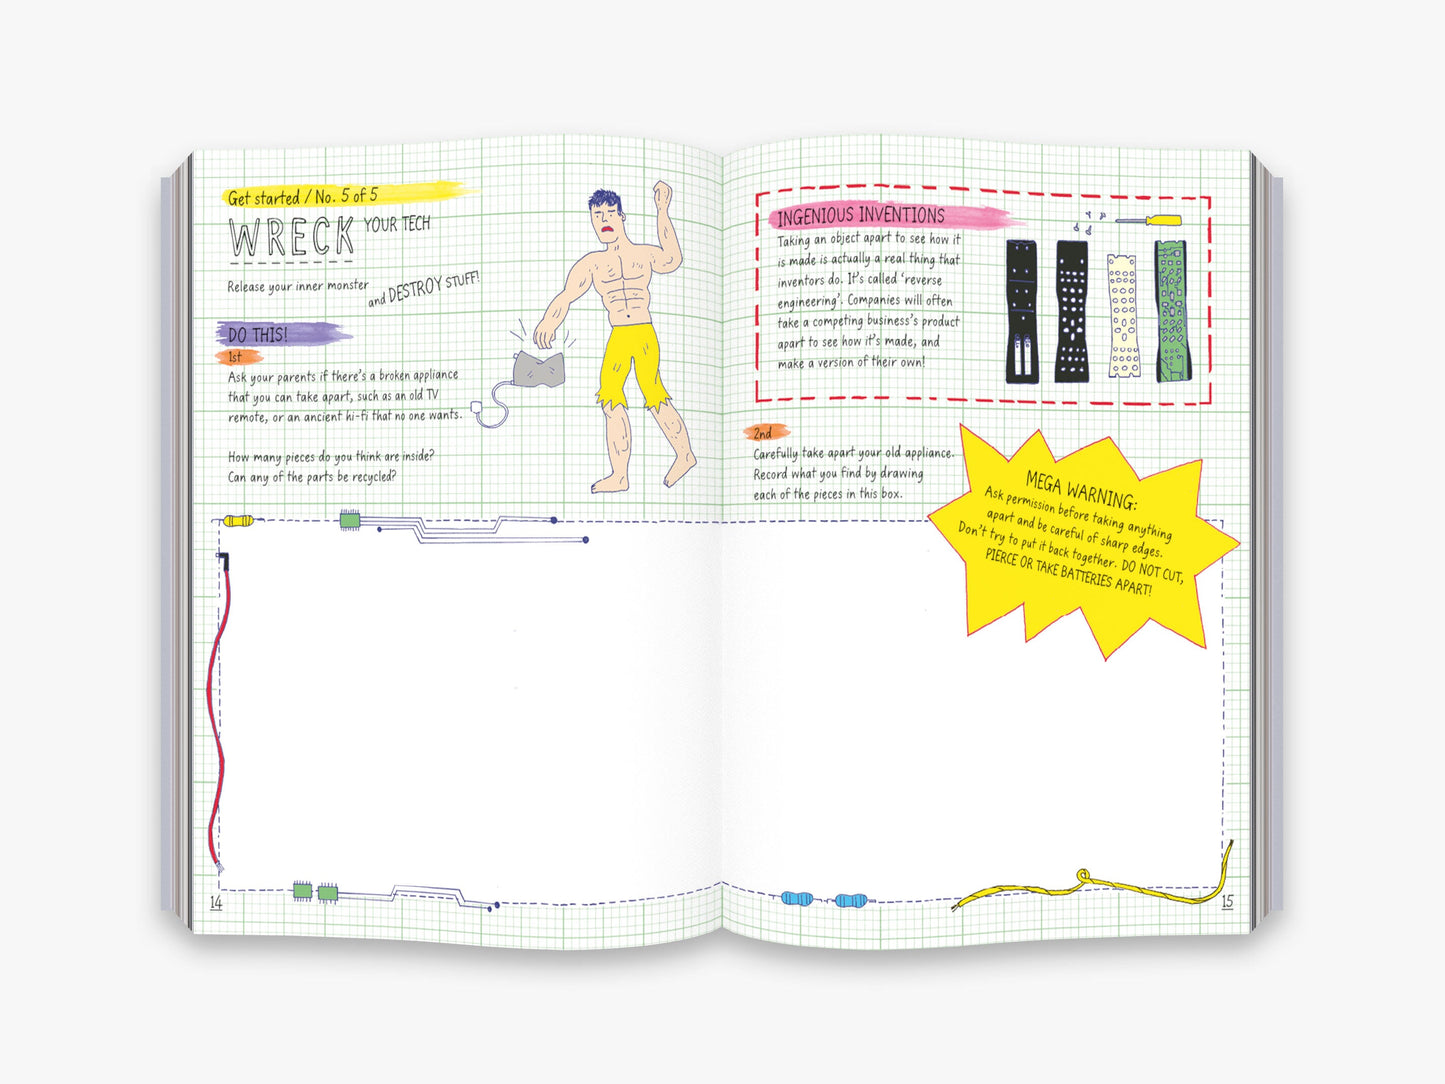 Get started / No. 5 of 5
WRECK YOUR TECH
Release your inner monster
and DESTROY STUFF!
DO THIS!
1st
Ask your parents if there's a broken appliance
that you can take apart, such as an old TV
remote, or an ancient hi-fi that no one wants.
How many pieces do you think are inside?
Can any of the parts be recycled?
14
INGENIOUS INVENTIONS
Taking an object apart to see how it
is made is actually a real thing that
inventors do. It's called 'reverse
engineering'. Companies will often
take a competing business's product
apart to see how it's made, and
make a version of their own!
2nd
Carefully take apart your old appliance.
Record what you find by drawing
each of the pieces in this box.
MEGA WARNING:
Ask permission before taking anything
apart and be careful of sharp edges.
Don't try to put it back together. DO NOT CUT,
PIERCE OR TAKE BATTERIES APART!
15